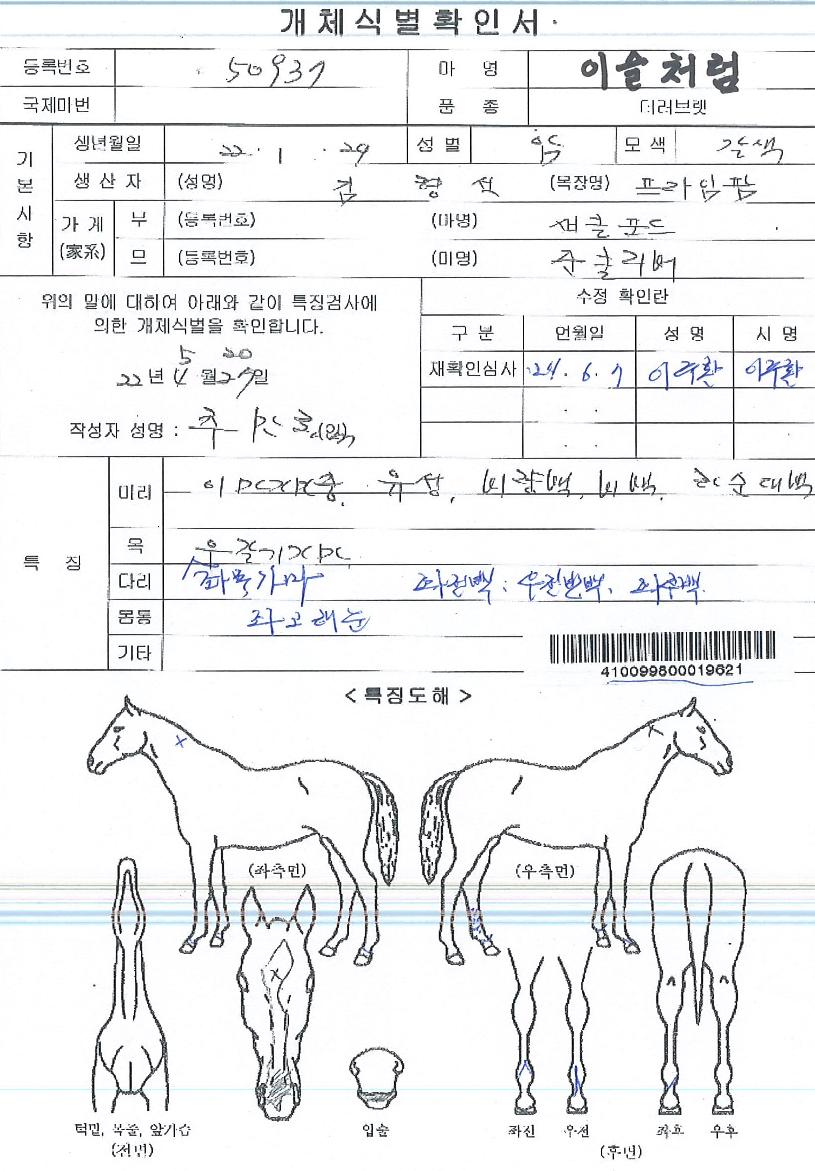 개체식별확인서
등록번호 50937 마 명 이슬처럼
국제마번 품 종 더러브렛
기본사항
생년월일 22. 1. 29 성별 암 모색 갈색
생산자 (성명) 김형선 (목장명) 프라임팜
가계(家系) 부 (등록번호) (마명) 섀클포드
모 (등록번호) (마명)
위의 말에 대하여 아래와 같이 특징검사에
의한 개체식별을 확인합니다.
5 20
22년 4월 27일
작성자 성명 :
수정 확인란
구분 연월일 성명 서명
재확인심사 24. 6. 7 이주환 이주환
특 징
머리 유성, 비량백, 비백,
목
좌목가마
다리 좌전백, 우전반백, 좌후백
몸통
기타
410099800019621
<특징도해>
(좌측면) (우측면)
턱밑, 목줄, 앞가슴 입술 좌전 우전 좌후 우후
(전면) (후면)